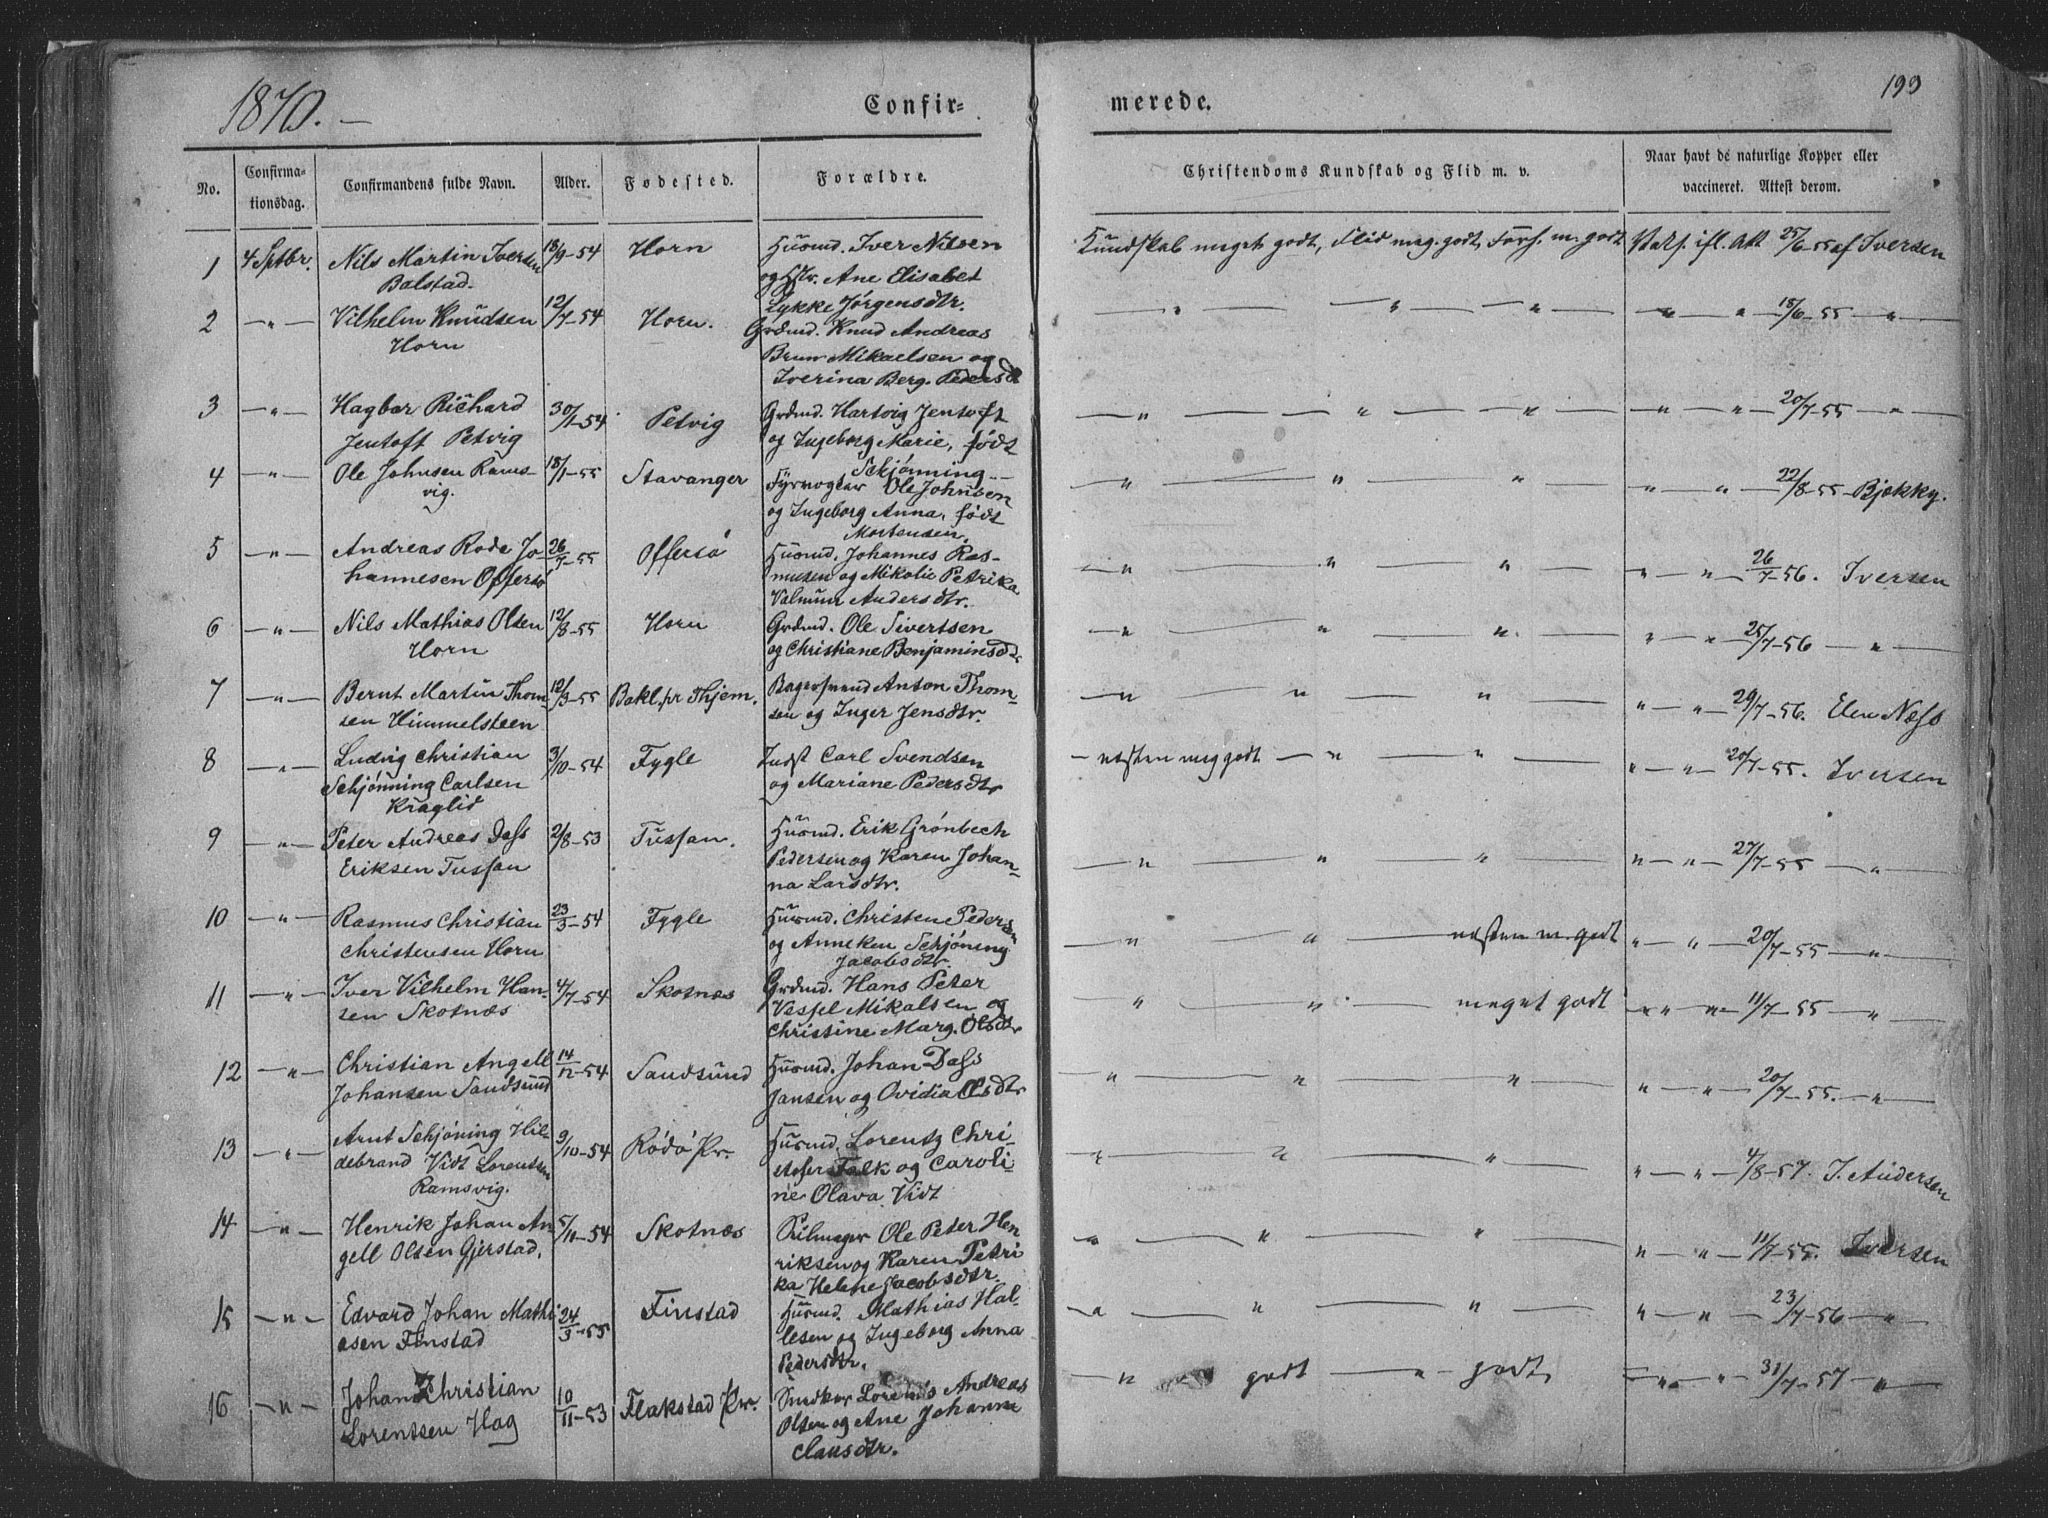 1870. —
Confir=
merede.
199
No.
Confirma-
tionsdag.
Confirmandens fulde Navn.
Alder.
Fødested.
Forældre.
Christendoms Kundskab og Flid m. v.
Naar havt de naturlige Kopper eller
vaccineret. Attest derom.
1 4 Sptbr. Nils Martin Iversen 18/9-54 Horn Husmd. Iver Nilsen Kundskab meget godt, Flid meg. godt, Forh. m. godt Vacs. ifl. Att 25/6-55 af Iversen
Bolstad. og Hstr. Ane Elisabet
Lykke Jørgensdtr.
2 —"— Vilhelm Knudsen 12/7-54 Horn. Grdmd. Knud Andreas — " — " — " — " — " 18/6-55 — "
Horn Brun Mikaelsen og
Iverina Berg. Pedersd
3 —"— Hagbar Richard 30/1-54 Petvig Grdmd. Hartvig Jentoft — " — " — " — " — " — 20/7-55 — "
Jentoft Petvig og Ingeborg Marie, født
Schjønning
4 —"— Ole Johnsen Rams- 18/1-55 Stavanger Fyrvogter Ole Johnsen " — " — " — " — " — 22/8-55 Bjekky.
vig. og Ingeborg Anna, født
Mortensen,
5 —"— Andreas Rode Jo- 26/7-55 Offersø Husmd. Johannes Ras- — " — " — " " — " 26/7-56. Iversen
hannesen Offersø musen og Mikolie Petrika
Valmum Andersdtr.
6 —"— Nils Mathias Olsen 12/8-55 Horn Grdmd. Ole Sivertsen — " — " — " " — " 25/7-56 — "
Horn og Christiane Benjaminsdtr
7 —"— Bernt Martin Thom- 12/3-55 Bakl. pr Thjem. Anton Thom- — " — " — " " — " — 29/7-56. Elen Næss
sen Himmelsteen sen og Inger Jensdtr.
8 —"— Ludvig Christian 3/10-54 Fygle Indst Carl Svendsen — næsten meg godt — " — " " — " — 20/7-55. Iversen
Schjønning Carlsen og Mariane Pedersdtr
Kraglid
9 —"— Peter Andreas Dass 2/8-53 Tussan. Husmd. Erik Grønbech — " — " — " " — " — 27/7-55 — "
Eriksen Tussan Pedersen og Karen Johan-
na Larsdtr.
10 —"— Rasmus Christian 23/3-54 Fygle Husmd. Christen Pedersen — " — " — næsten m. godt " — " — 20/7-55 — "
Christensen Horn og Anneken Schjøning
Jacobsdtr.
11 —"— Iver Vilhelm Han- 4/7-54 Skotnæs Grdmd. Hans Peter " — " — meget godt " — " — 11/7-55 — "
sen Skotnæs Vessel Mikalsen og
Christine Marg. Olsdtr
12 —"— Christian Angell 14/12-54 Sandsund Husmd. Johan Dass " — " — " " — " — 20/7-55. — "
Johansen Sandsund Jansen og Ovidia Olsdtr
13 —"— Arnt Schjøning Hil- 9/10-54 Rødø Pr. Husmd. Lorentz Chri- " — " — " " — " — 4/8-57. J. Andersen
debrand Vidt Lorentsen stofer Falk og Caroli-
Ramsvig. ne Olava Vidt
14 —"— Henrik Johan An- 5/11-54 Skotnæs Ole Peter Hen " — " — " " — " — 11/7-55. Iversen
gell Olsen Gjerstad. riksen og Karen Petri
ka Helene Jacobsdtr.
15 —"— Edvard Johan Mathi 24/3-55 Finstad Husmd. Mathias Hal- " — " — " " — " — 23/7-56 — "
asen Finstad lesen og Ingeborg Anna
Pedersdtr.
16 —"— Johan Christian 10/11-53 Flakstad Pr. Lorents Andreas — " — godt — " — godt. — " — " — 31/7-57 — "
Lorentsen Hag Olsen og Ane Johanne
Clausdtr.